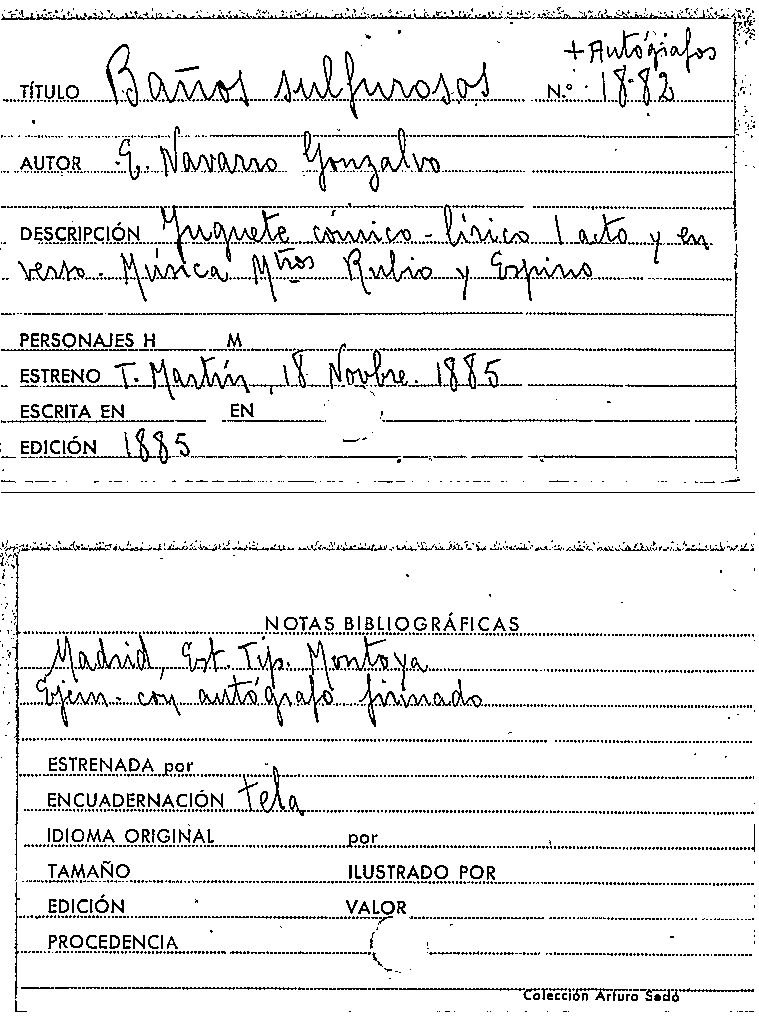 + Autógrafos
TÍTULO Baños sulfurosos N.º 18-82
AUTOR E. Navarro Gonzalvo
DESCRIPCIÓN Juguete cómico-lírico 1 acto y en
verso. Música Mtros Rubio y Espino
PERSONAJES H M
ESTRENO T. Martín, 18 Novbre. 1885
ESCRITA EN EN
EDICIÓN 1885
NOTAS BIBLIOGRÁFICAS
Madrid, Est. Tip. Montoya
Ejem. con autógrafo firmado
ESTRENADA por
ENCUADERNACIÓN tela
IDIOMA ORIGINAL por
TAMAÑO ILUSTRADO POR
EDICIÓN VALOR
PROCEDENCIA
Colección Arturo Sedó